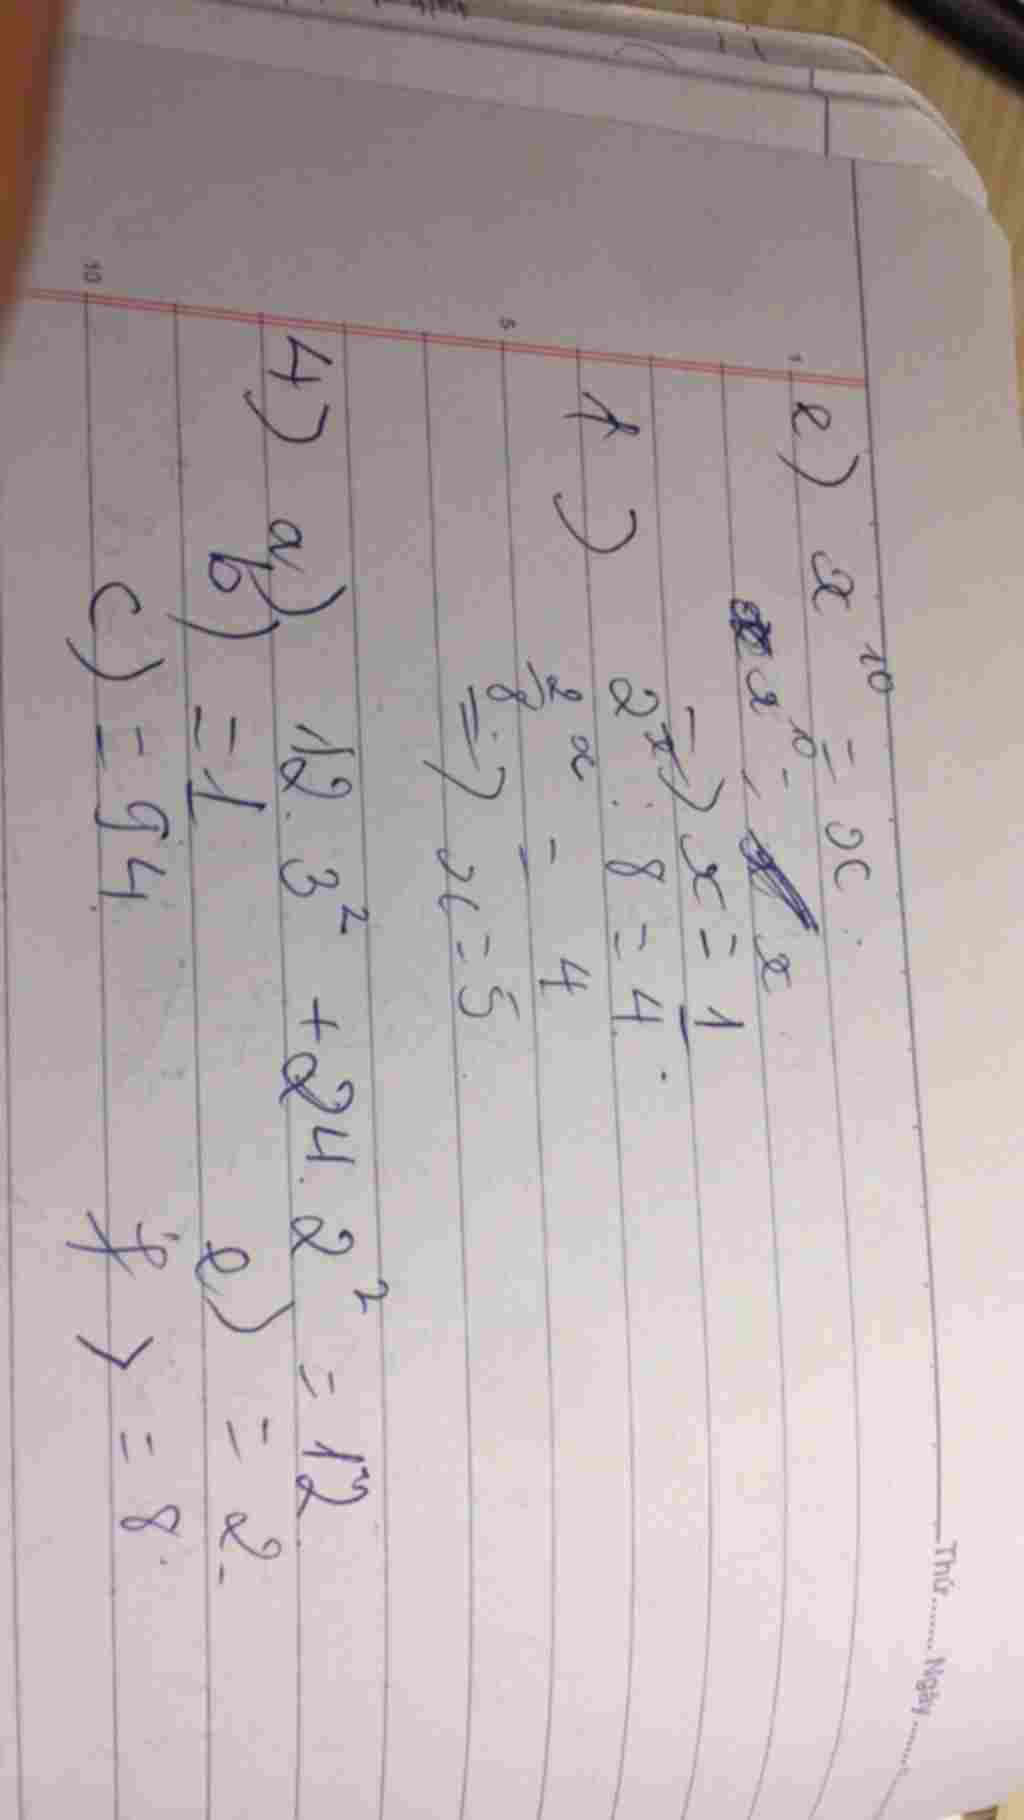 Thứ....... Ngày.......
e) x¹⁰ = x.
x¹⁰ = x
=> x = 1
f) 2ˣ : 8 = 4.
2ˣ/8 = 4
=> x = 5
4) a) 12. 3² + 24. 2² = 12
b) = 1 e) = 2.
c) = 94 f) = 8.
1
5
10